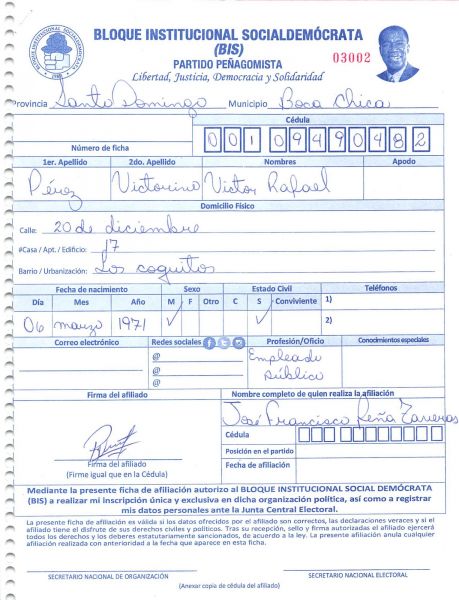 BLOQUE INSTITUCIONAL SOCIALDEMÓCRATA
(BIS)
PARTIDO PEÑAGOMISTA
03002
Libertad, Justicia, Democracia y Solidaridad
Provincia Santo Domingo Municipio Boca Chica
Cédula
Número de ficha 0 0 1 0 9 4 9 0 4 8 2
1er. Apellido 2do. Apellido Nombres Apodo
Pérez Victorino Victor Rafael
Domicilio Físico
Calle: 20 de diciembre
#Casa / Apt. / Edificio: 17
Barrio / Urbanización: Los coquitos
Fecha de nacimiento Sexo Estado Civil Teléfonos
Día Mes Año M F Otro C S Conviviente 1)
06 marzo 1971 ✓ ✓ 2)
Correo electrónico Redes sociales Profesión/Oficio Conocimientos especiales
@ Empleado
@ público
@
Firma del afiliado Nombre completo de quien realiza la afiliación
José Francisco Peña Taveras
Cédula
Posición en el partido
Firma del afiliado Fecha de afiliación
(Firme igual que en la Cédula)
Mediante la presente ficha de afiliación autorizo al BLOQUE INSTITUCIONAL SOCIAL DEMÓCRATA
(BIS) a realizar mi inscripción única y exclusiva en dicha organización política, así como a registrar
mis datos personales ante la Junta Central Electoral.
La presente ficha de afiliación es válida si los datos ofrecidos por el afiliado son correctos, las declaraciones veraces y si el
afiliado tiene el disfrute de sus derechos civiles y políticos. Tras su recepción, sello y firma autorizadas el afiliado ejercerá
todos los derechos y los deberes estatutariamente sancionados, de acuerdo a la ley. La presente afiliación anula cualquier
afiliación realizada con anterioridad a la fecha que aparece en esta ficha.
SECRETARIO NACIONAL DE ORGANIZACIÓN SECRETARIO NACIONAL ELECTORAL
(Anexar copia de cédula del afiliado)